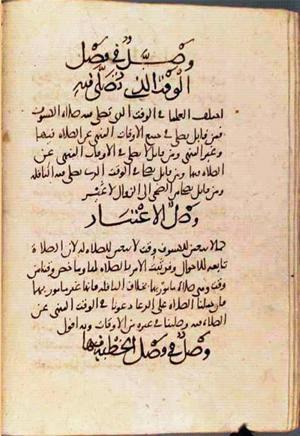 وصل في فصل
الوقت الذي تصلى فيه
اختلف العلما في الوقت الذي تصلى فيه صلاة الكسوف
فمن قايل يصلى في جميع الاوقات المنهى عن الصلاة فيها
وغير المنهى ومن قايل لا يصلى في الاوقات المنهى عن
الصلاة فيها ومن قايل يصلى في الوقت الذي يصلى فيه النافلة
ومن قايل يصلى من الضحى الى الزوال لا غير
وصل الاعتبار
كما لا يتعين للكسوف وقت لا يتعين للصلاة له لان الصلاة
تابعة للاحوال وقد ثبت الامر بالصلاة لها وما خص وقتا من
وقت وهي صلاة مامور بها بخلاف النافلة فانها غير مامور بها
فان حملنا الصلاة على الدعا دعونا في الوقت المنهى عن
الصلاة فيه وصلينا في غيره من الاوقات وبه اقول
وصل في فصل الخطبة فيها